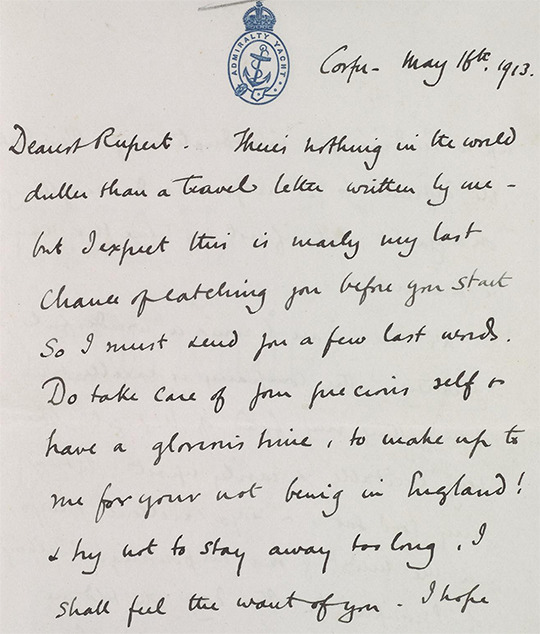 ADMIRALTY YACHT
Corfu - May 16th. 1913.
Dearest Rupert. There's nothing in the world
duller than a travel letter written by me -
but I expect this is nearly my last
chance of catching you before you start
So I must send you a few last words.
Do take care of your precious self &
have a glorious time, to make up to
me for your not being in England!
& try not to stay away too long, I
shall feel the want of you - I hope